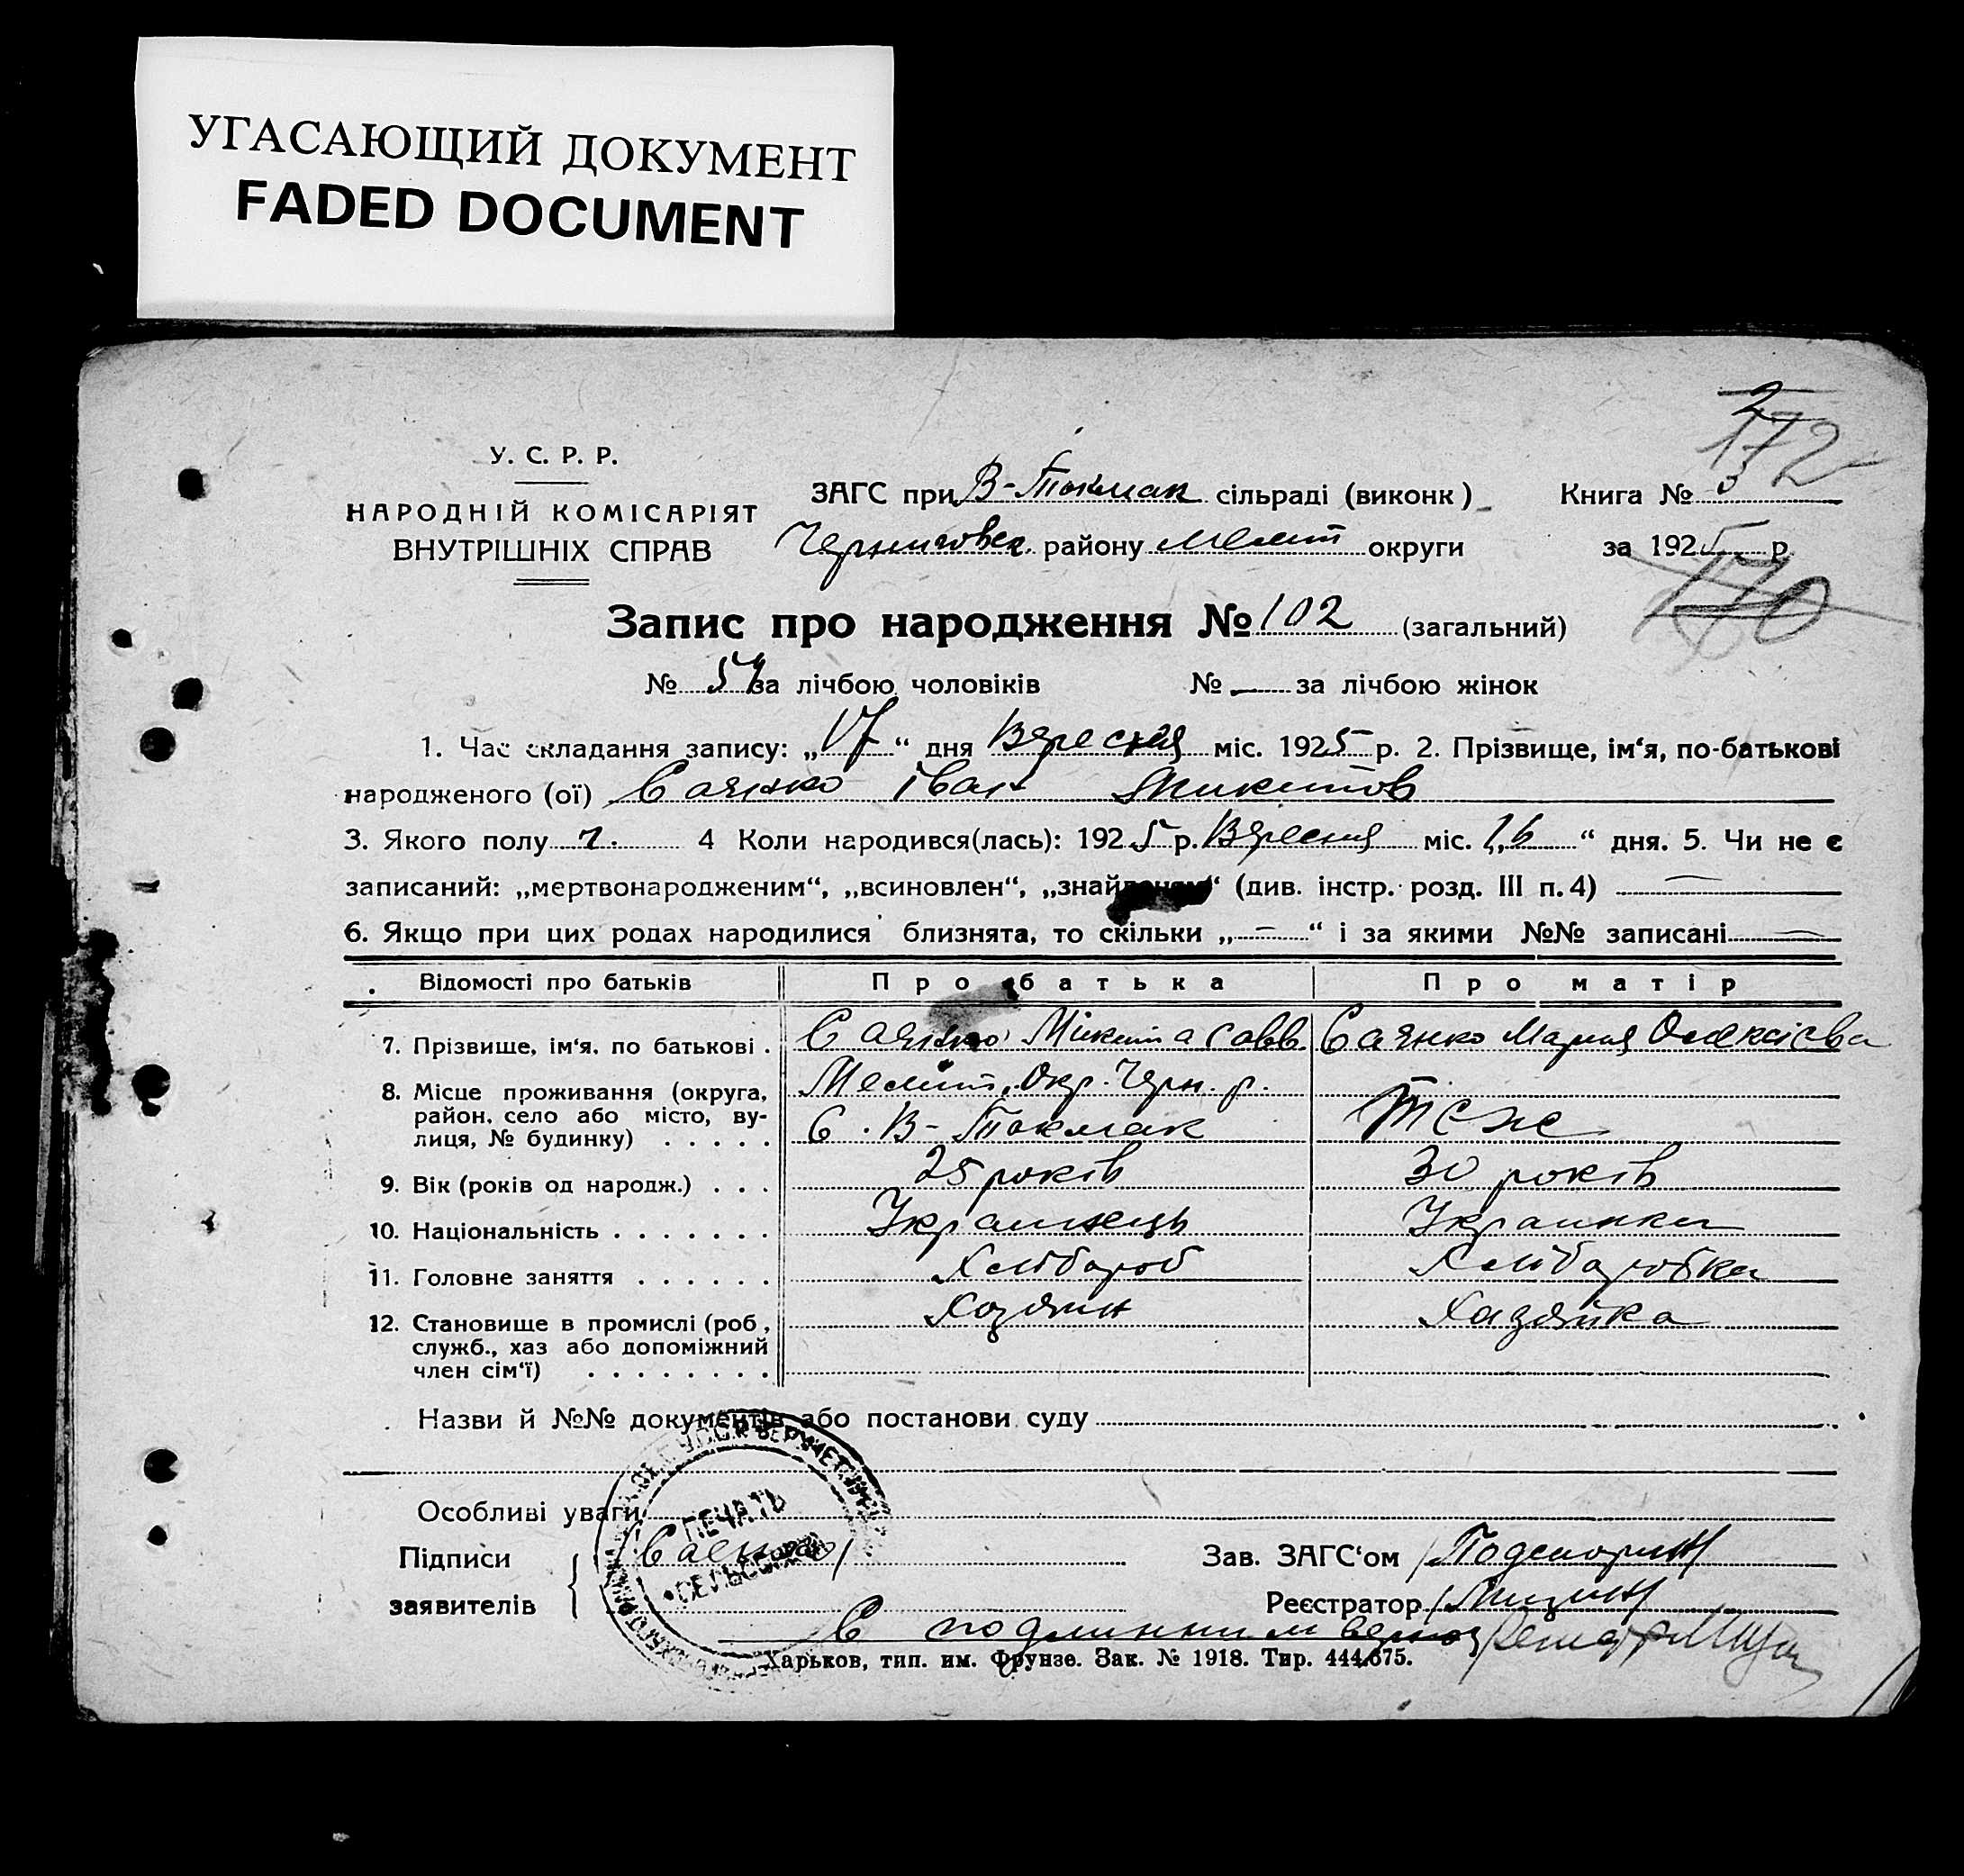 УГАСАЮЩИЙ ДОКУМЕНТ
FADED DOCUMENT
2
172
У. С. Р. Р.
НАРОДНІЙ КОМІСАРІЯТ
ВНУТРІШНІХ СПРАВ
ЗАГС при В-Токмак сільраді (виконк)
Книга № 3
Черниговск. району Мелит округи
за 1925 р.
170
Запис про народження № 102 (загальний)
№ 54 за лічбою чоловіків № — за лічбою жінок
1. Час складання запису: „17“ дня Вересня міс. 1925 р. 2. Прізвище, ім‘я, по-батькові
народженого (ої) Саянко Іван Микитов
3. Якого полу ч. 4 Коли народився(лась): 1925 р. Вересня міс. 16 “ дня. 5. Чи не є
записаний: „мертвонародженим“, „всиновлен“, „знайденим“ (див. інстр. розд. III п. 4) —
6. Якщо при цих родах народилися близнята, то скільки „—“ і за якими №№ записані —
Відомості про батьків Про батька Про матір
7. Прізвище, ім‘я, по батькові . Саянко Микита Савв. Саянко Мария Олексієва
8. Місце проживання (округа, район, село або місто, ву-
лиця, № будинку) . . . . . Мелит. Окр. Черн. р.
С. В-Токмак Теж
9. Вік (років од народж.) . . . 25 років 30 років
10. Національність . . . . . . . Украинець Украинка
11. Головне заняття . . . . . . Хлібороб Хліборобка
12. Становище в промислі (роб, Хозяин Хазяйка
служб., хаз або допоміжний
член сім‘ї) . . . . . . . .
Назви й №№ документів або постанови суду
Особливі уваги
Підписи
заявителів
Саенко
ПЕЧАТЬ
СЕЛЬСОВЕТА
Зав. ЗАГС‘ом
Реєстратор
С подлинним верно
Харьков, тип. им. Фрунзе. Зак. № 1918. Тир. 444.675.